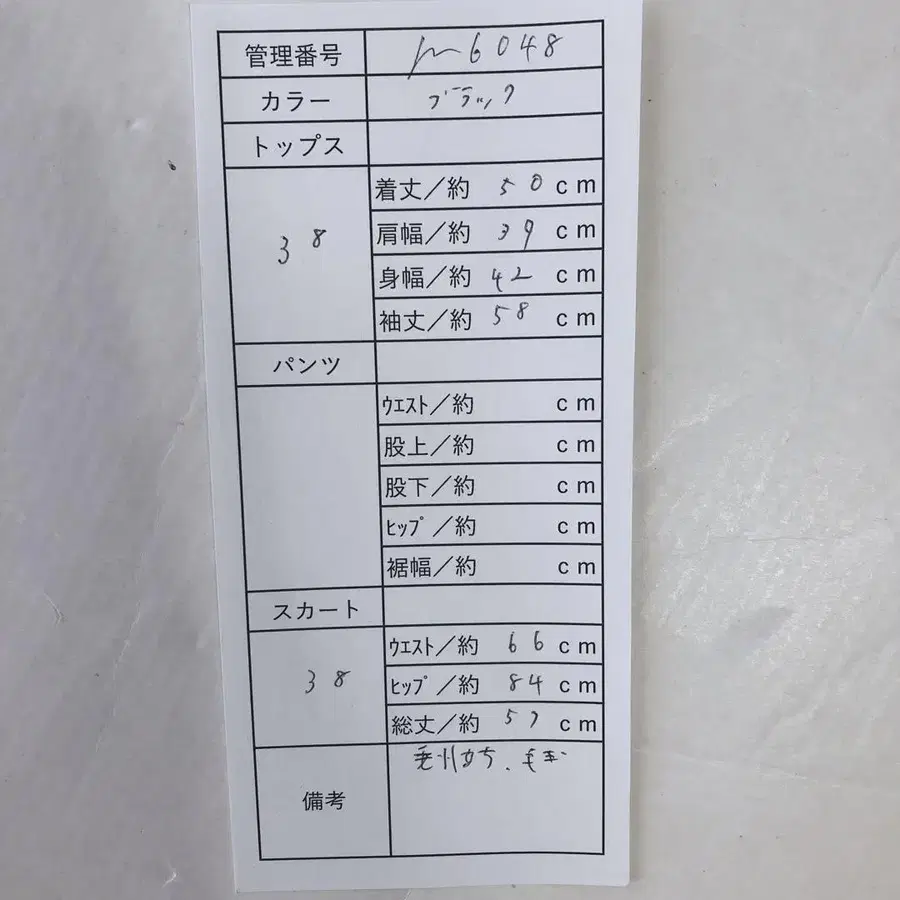 管理番号 m6048
カラー ブラック
トップス
38
着丈／約 50 cm
肩幅／約 39 cm
身幅／約 42 cm
袖丈／約 58 cm
パンツ
ｳｴｽﾄ／約 cm
股上／約 cm
股下／約 cm
ﾋｯﾌﾟ／約 cm
裾幅／約 cm
スカート
38
ｳｴｽﾄ／約 66 cm
ﾋｯﾌﾟ／約 84 cm
総丈／約 57 cm
備考 毛羽立ち、毛玉